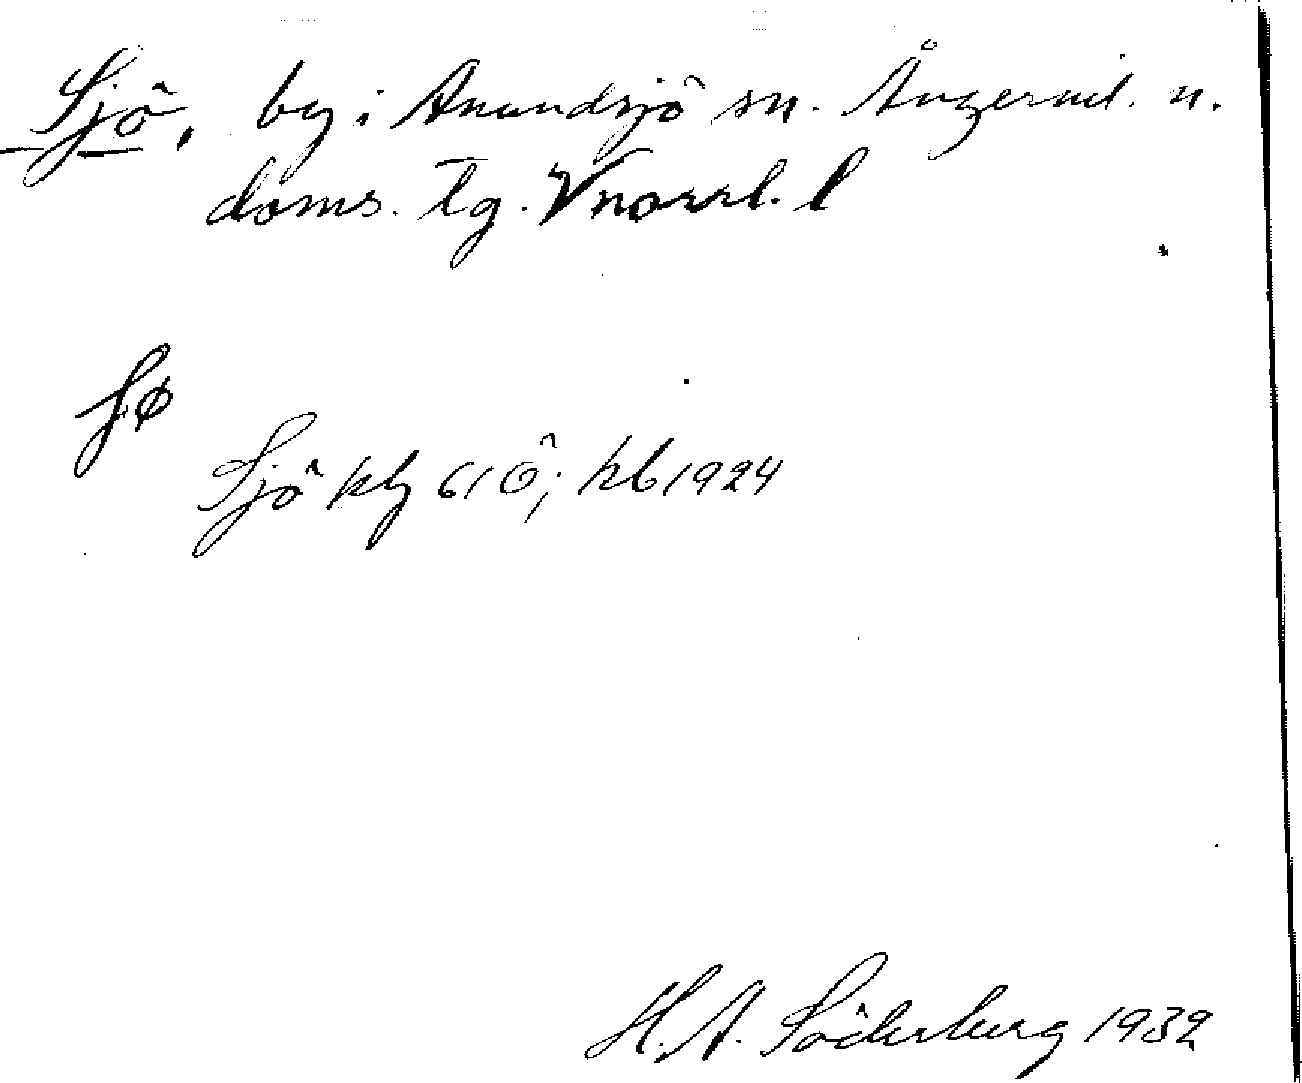 Sjö, by i Anundsjö sn. Ångerml. n.
doms. tg. Vnorrl. l
ʃø
Sjö kbg 61 Ö; hb 1924
H. A. Söderberg 1932